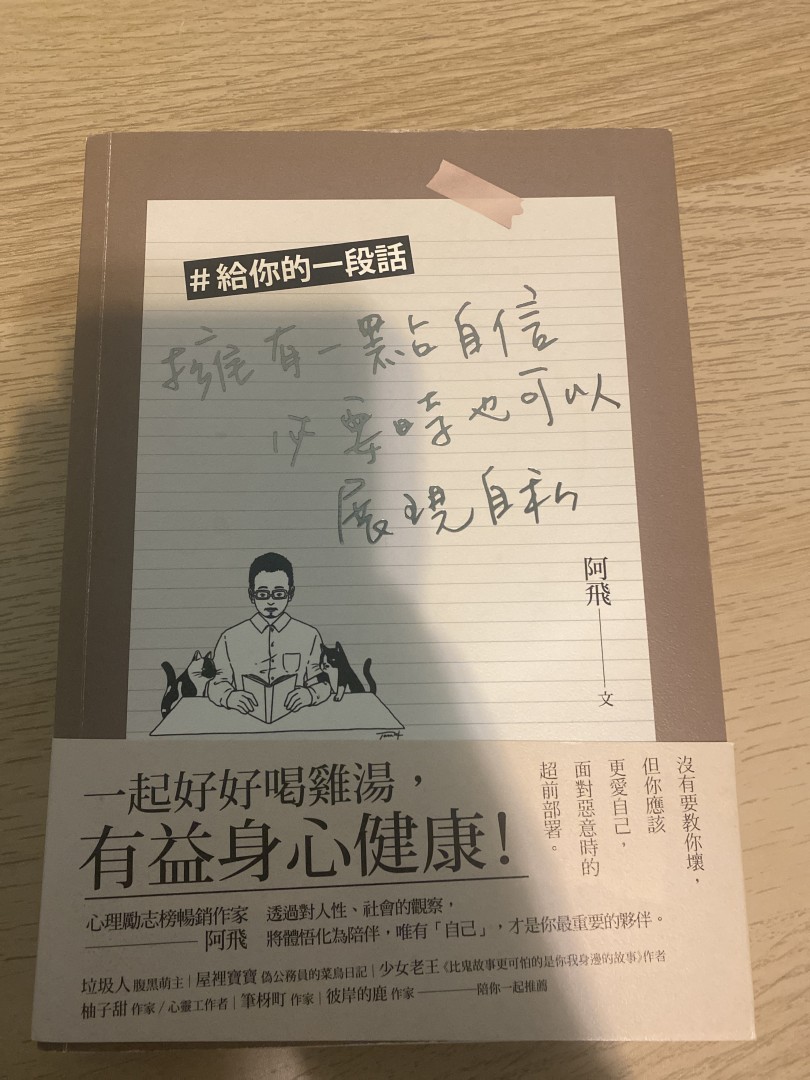 #給你的一段話
擁有一點自信
必要時也可以
展現自私
阿飛——文
沒有要教你壞，
但你應該
更愛自己，
面對惡意時的
超前部署。
一起好好喝雞湯，
有益身心健康！
心理勵志榜暢銷作家
——阿飛
透過對人性、社會的觀察，
將體悟化為陪伴，唯有「自己」，才是你最重要的夥伴。
垃圾人 腹黑萌主｜屋裡寶寶 偽公務員的菜鳥日記｜少女老王《比鬼故事更可怕的是你我身邊的故事》作者
柚子甜 作家／心靈工作者｜筆枒町 作家｜彼岸的鹿 作家——陪你一起推薦